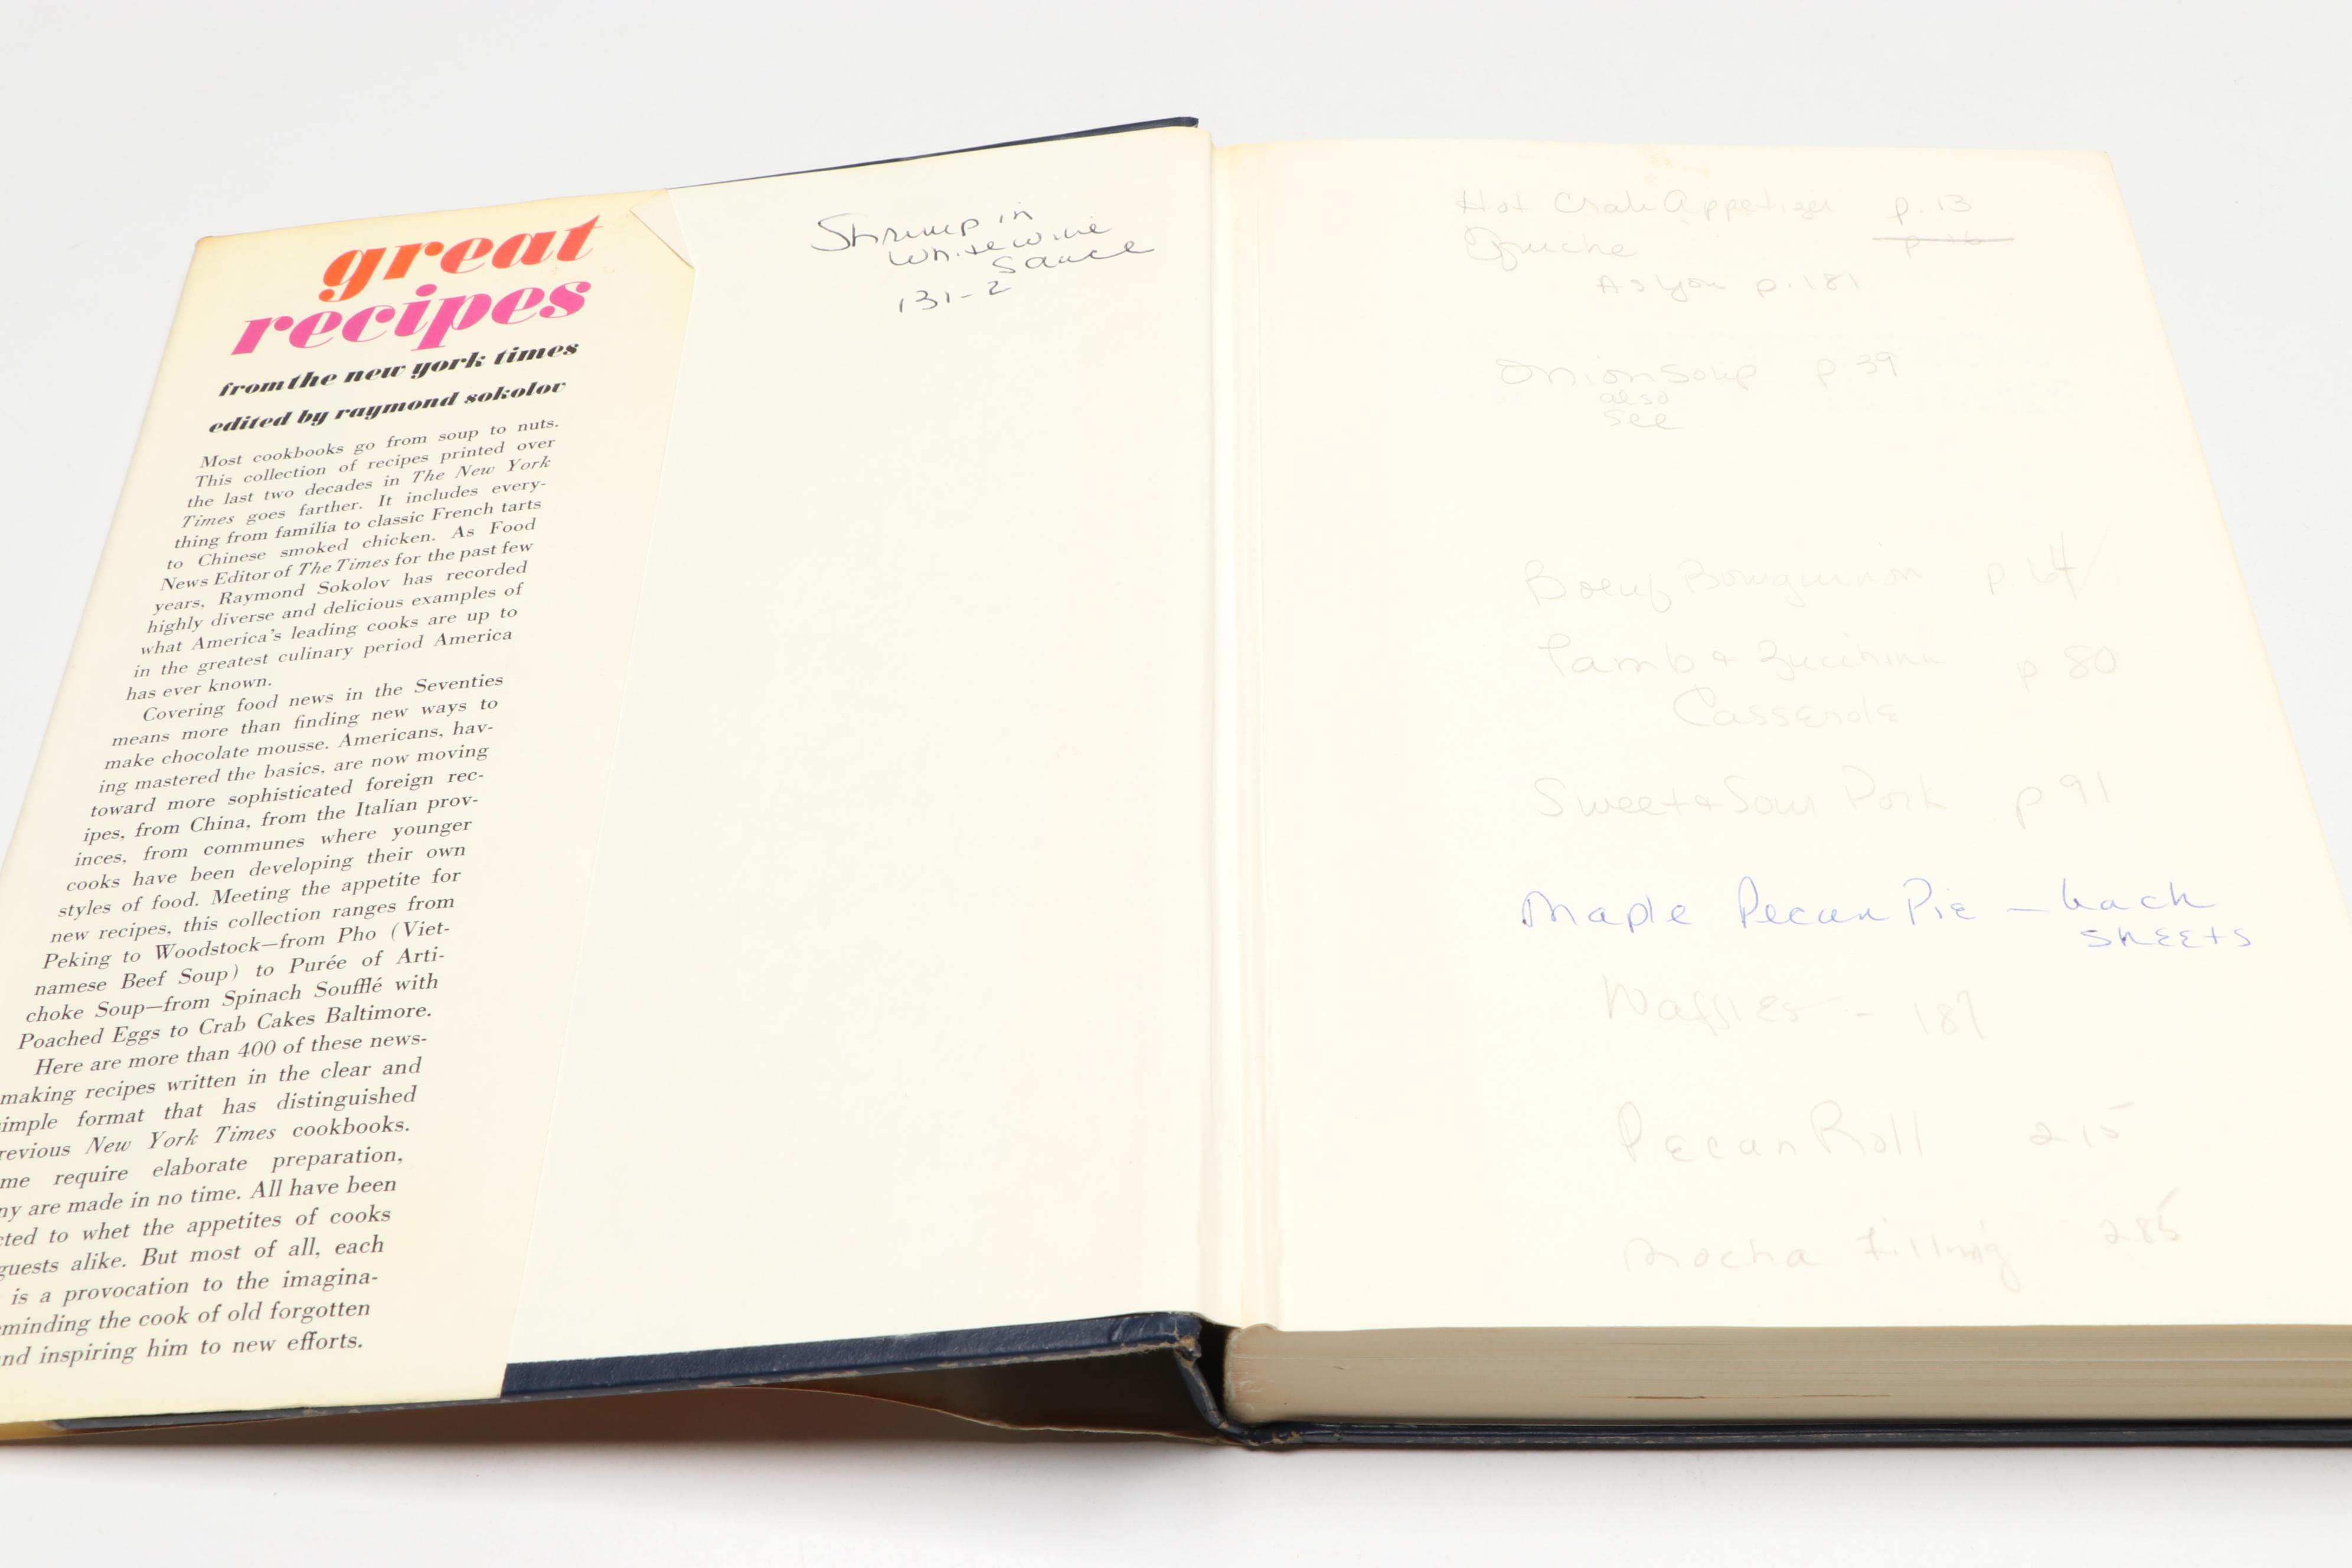 great
recipes
from the new york times
edited by raymond sokolov
Most cookbooks go from soup to nuts.
This collection of recipes printed over
the last two decades in The New York
Times goes farther. It includes every-
thing from familia to classic French tarts
to Chinese smoked chicken. As Food
News Editor of The Times for the past few
years, Raymond Sokolov has recorded
highly diverse and delicious examples of
what America's leading cooks are up to
in the greatest culinary period America
has ever known.
Covering food news in the Seventies
means more than finding new ways to
make chocolate mousse. Americans, hav-
ing mastered the basics, are now moving
toward more sophisticated foreign rec-
ipes, from China, from the Italian prov-
inces, from communes where younger
cooks have been developing their own
styles of food. Meeting the appetite for
new recipes, this collection ranges from
Peking to Woodstock—from Pho (Viet-
namese Beef Soup) to Purée of Arti-
choke Soup—from Spinach Soufflé with
Poached Eggs to Crab Cakes Baltimore.
Here are more than 400 of these news-
making recipes written in the clear and
imple format that has distinguished
revious New York Times cookbooks.
me require elaborate preparation,
ny are made in no time. All have been
cted to whet the appetites of cooks
guests alike. But most of all, each
is a provocation to the imagina-
minding the cook of old forgotten
nd inspiring him to new efforts.
Shrimp in
White wine
Sauce
131-2
Hot Crab Appetizer p. 13
Quiche p 16
As You p. 181
Onion Soup p. 39
also
see
Boeuf Bourguinon p 64
Lamb & Zucchini p 80
Casserole
Sweet & Sour Pork p 91
Maple Pecan Pie — back
sheets
Waffles - 187
Pecan Roll 215
Mocha Filling 285